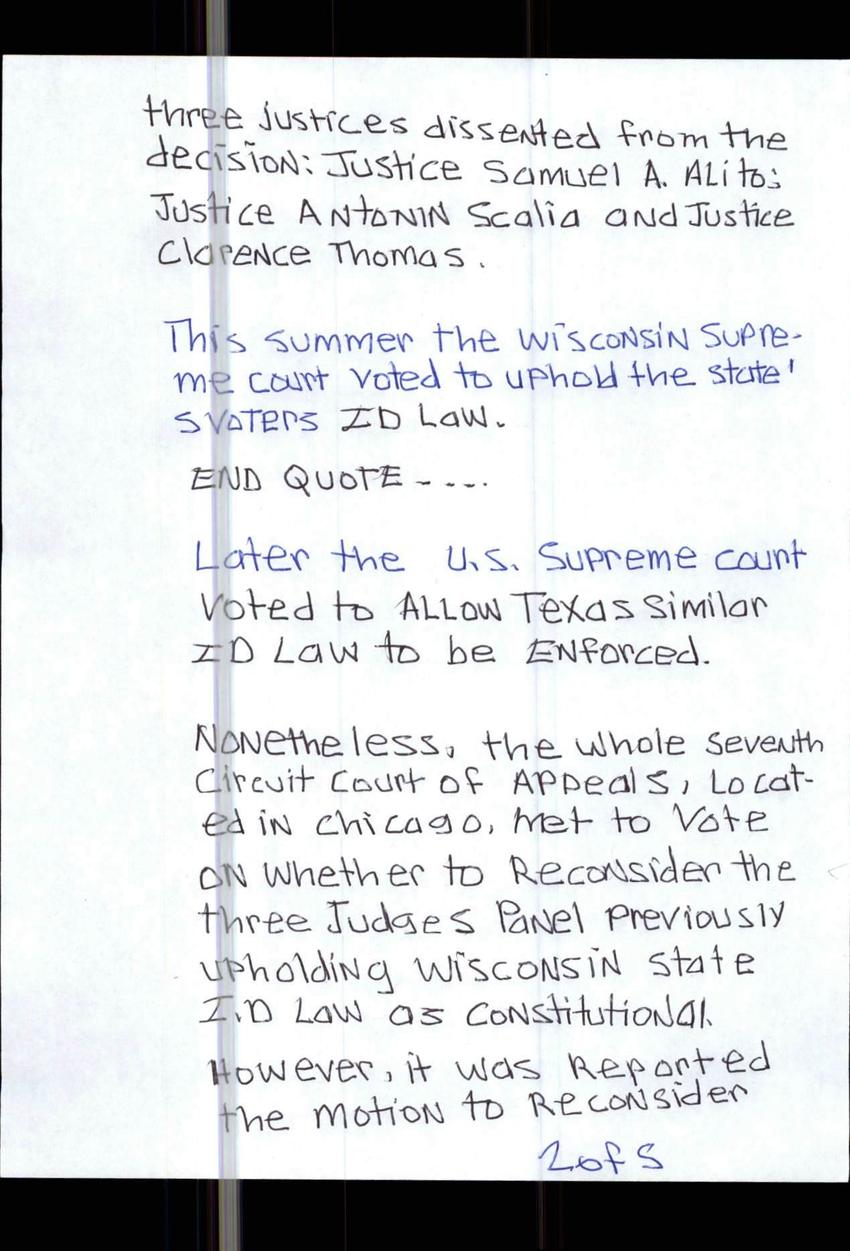 three justices dissented from the
decision: Justice Samuel A. Alito;
Justice Antonin Scalia and Justice
Clarence Thomas.
This summer the Wisconsin Supre-
me court voted to uphold the state'
s voters ID Law.
END QUOTE - - - -.
Later the U.S. Supreme court
voted to ALLOW Texas similar
ID Law to be ENforced.
Nonetheless, the whole seventh
Circuit Court of Appeals, Locat-
ed in Chicago, met to Vote
on whether to Reconsider the
three Judges Panel previously
upholding Wisconsin State
I.D Law as constitutional.
However, it was Reported
the motion to Reconsider
2 of 5